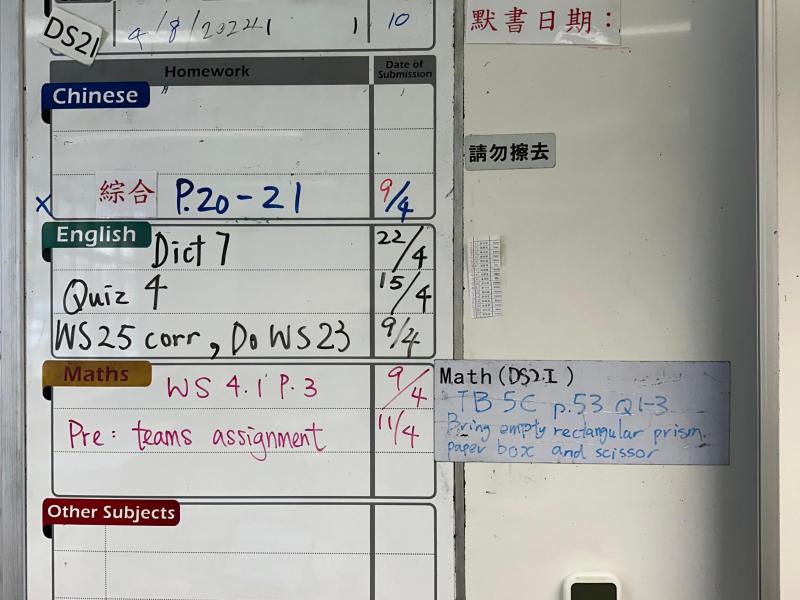 DS21
4/8/2024
10
默書日期：
Homework
Date of Submission
Chinese
綜合 P.20-21 9/4
請勿擦去
English
Dict 7 22/4
Quiz 4 15/4
WS25 corr, Do WS23 9/4
Maths
WS 4.1 P.3 9/4
Pre: teams assignment 11/4
Math(DS2.I)
TB 5C p.53 Q1-3
Bring empty rectangular prism.
paper box and scissor
Other Subjects